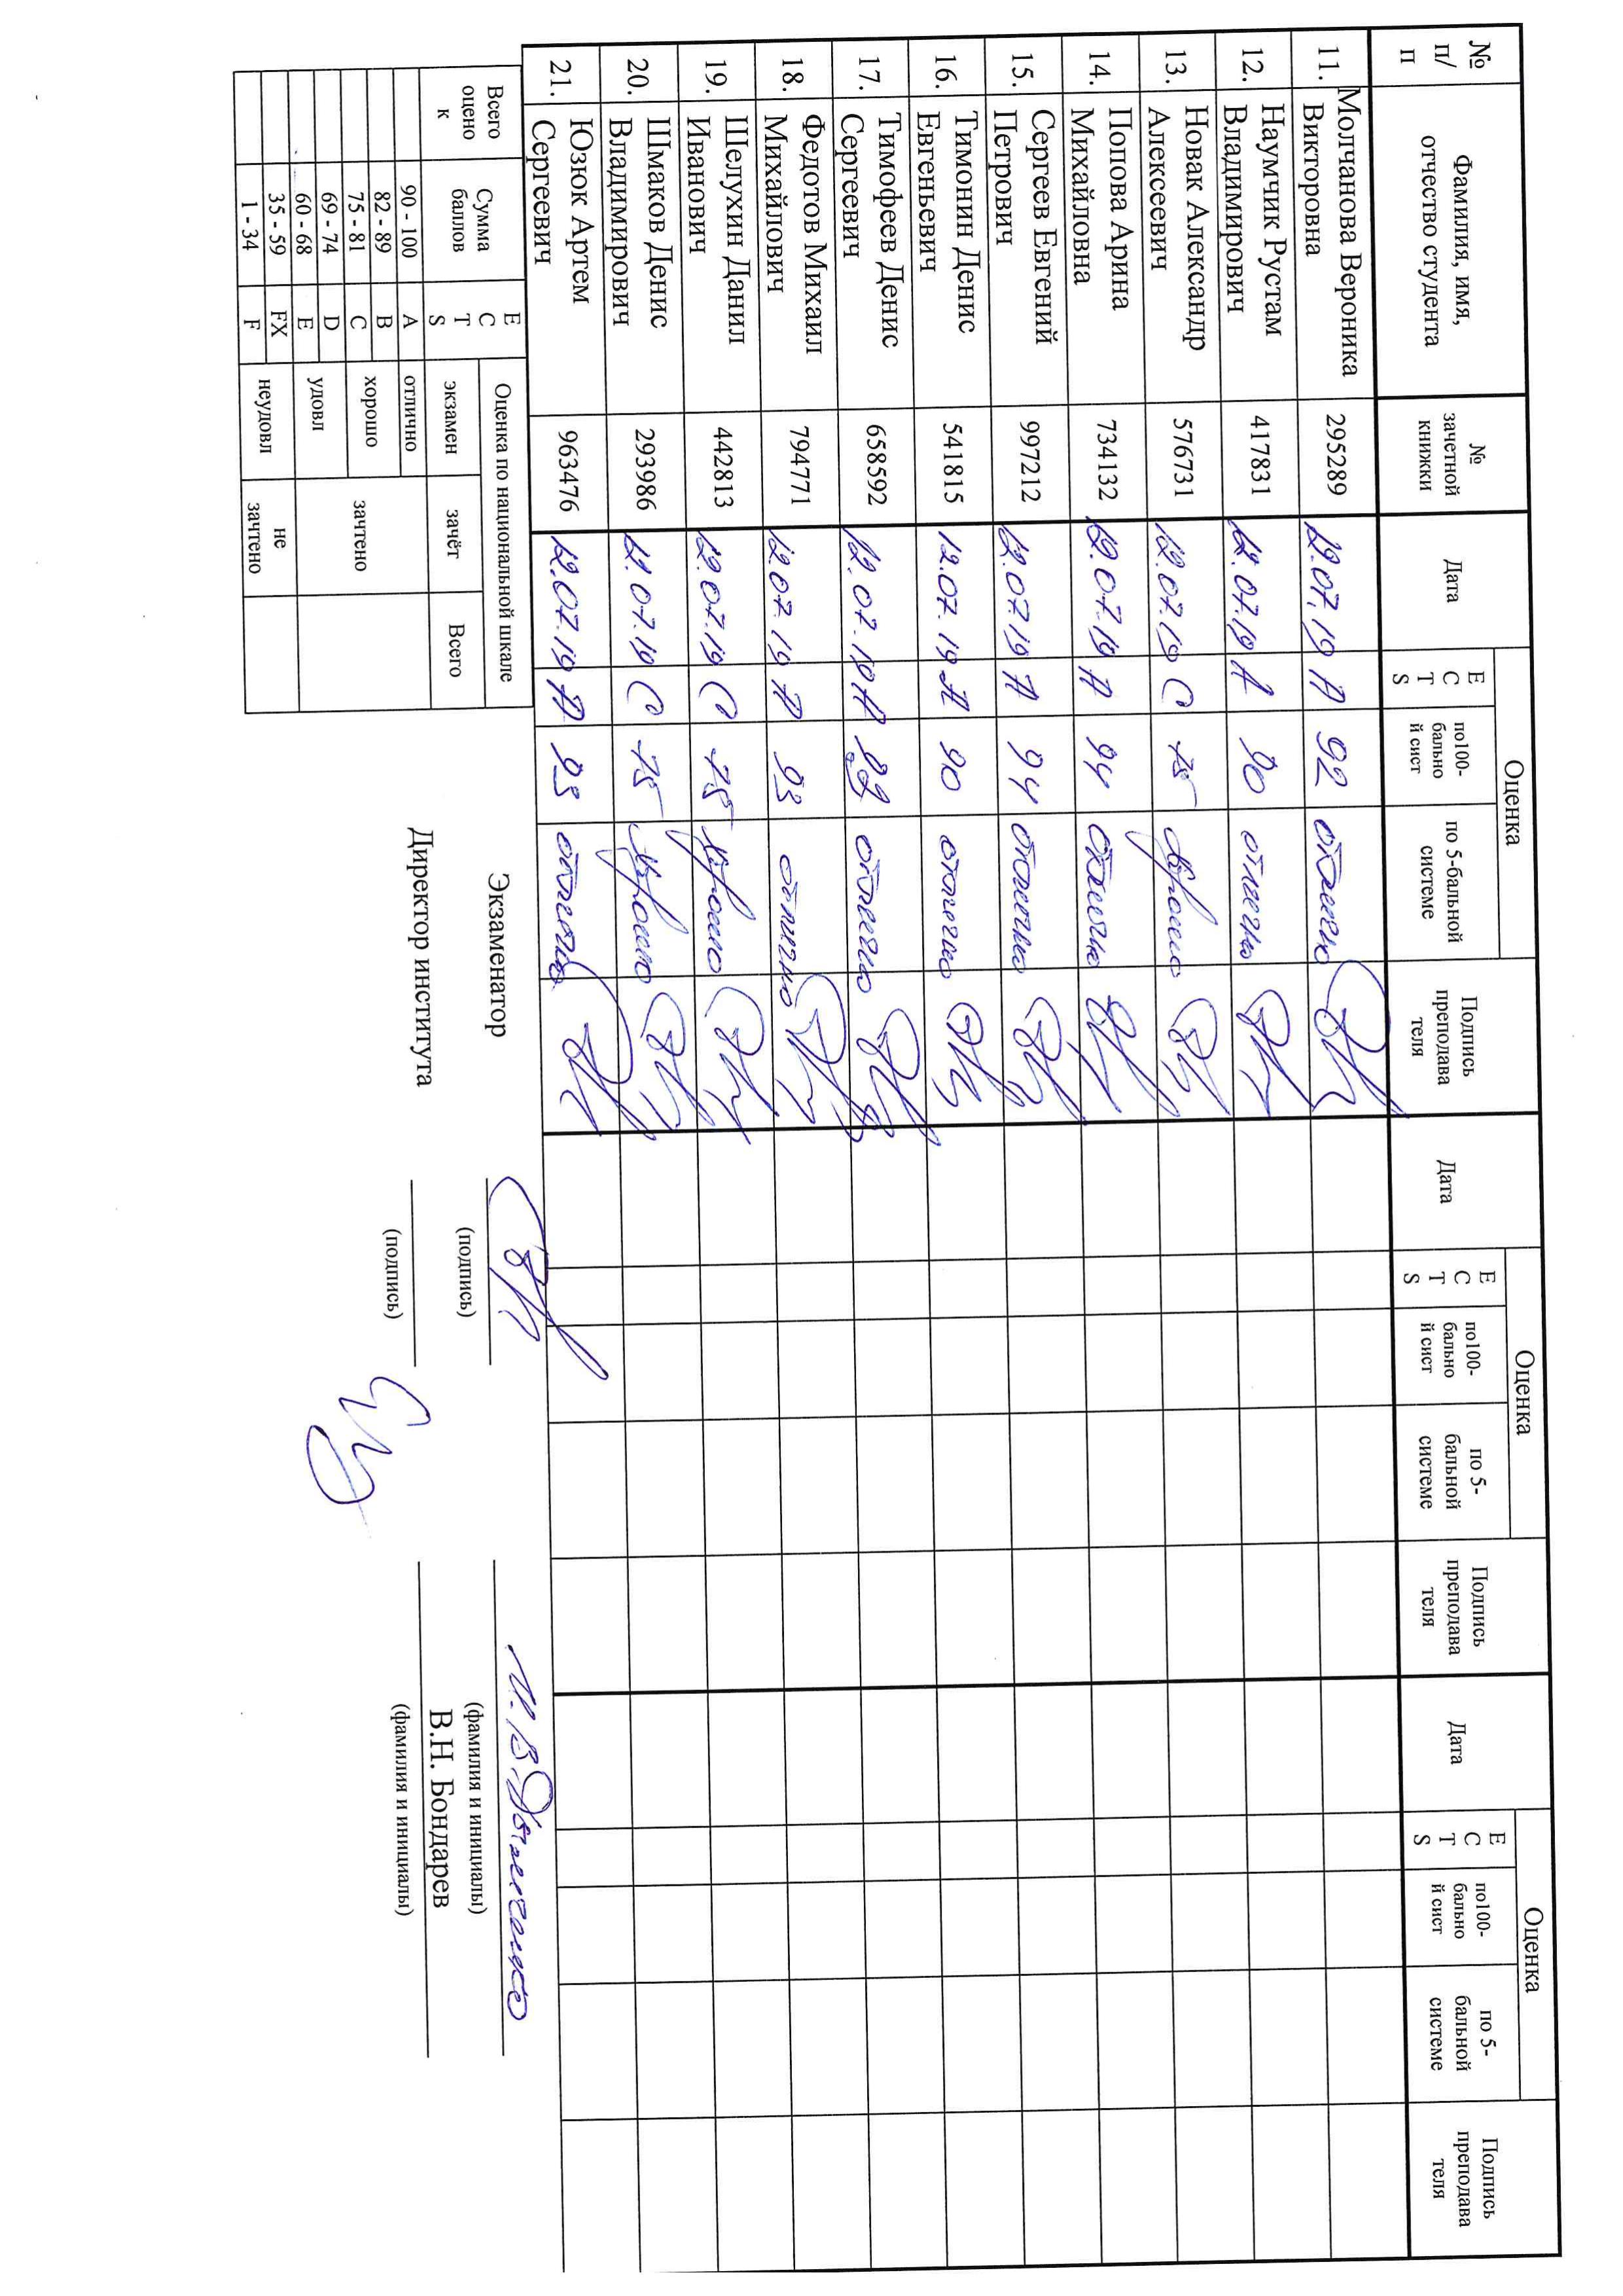 № п/п Фамилия, имя, отчество студента № зачетной книжки Дата Оценка ECTS по100-бальной сист по 5-бальной системе Подпись преподавателя Дата Оценка ECTS по100-бальной сист по 5-бальной системе Подпись преподавателя Дата Оценка ECTS по100-бальной сист по 5-бальной системе Подпись преподавателя
11. Молчанова Вероника Викторовна 295289 12.07.19 A 92 отлично
12. Наумчик Рустам Владимирович 417831 12.07.19 A 90 отлично
13. Новак Александр Алексеевич 576731 12.07.19 C 75 хорошо
14. Попова Арина Михайловна 734132 12.07.19 A 94 отлично
15. Сергеев Евгений Петрович 997212 12.07.19 A 94 отлично
16. Тимонин Денис Евгеньевич 541815 12.07.19 A 90 отлично
17. Тимофеев Денис Сергеевич 658592 12.07.19 A отлично
18. Федотов Михаил Михайлович 794771 12.07.19 A 93 отлично
19. Шелухин Данил Иванович 442813 12.07.19 C 75 хорошо
20. Шмаков Денис Владимирович 293986 12.07.19 C 75 хорошо
21. Юзюк Артем Сергеевич 963476 12.07.19 A 93 отлично
Всего оценок Сумма баллов ECTS Оценка по национальной шкале
экзамен зачёт Всего
90 - 100 A отлично
82 - 89 B хорошо
75 - 81 C зачтено
69 - 74 D удовл
60 - 68 E
35 - 59 FX неудовл не зачтено
1 - 34 F
Экзаменатор И.В.Дымченко
(подпись) (фамилия и инициалы)
Директор института В.Н. Бондарев
(подпись) (фамилия и инициалы)